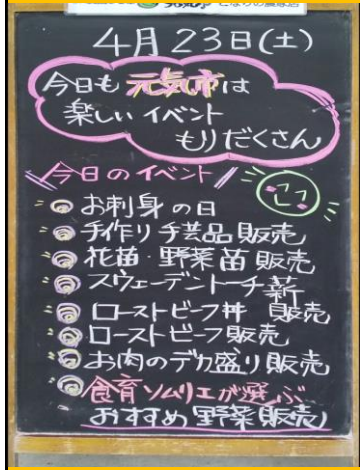 4月23日(土)
今日も元気市は
楽しいイベント
もりだくさん
今日のイベント
お刺身の日
手作り手芸品販売
花苗・野菜苗販売
スウェーデントーチ薪
ローストビーフ丼 販売
ローストビーフ販売
お肉のデカ盛り販売
食育ソムリエが選ぶ
おすすめ野菜販売